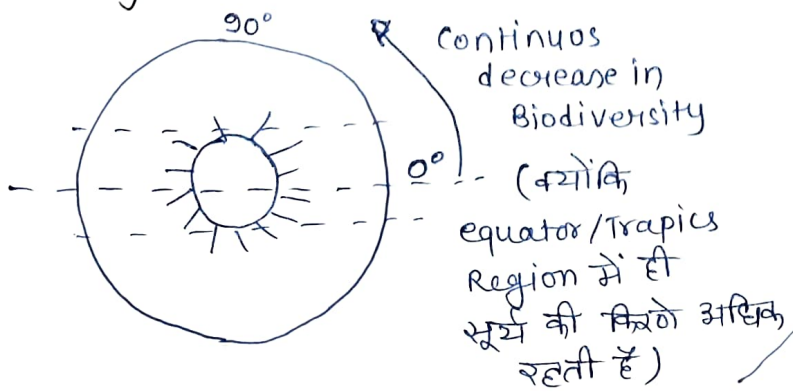 90°
Continuos
decrease in
Biodiversity
0°
(क्योंकि
equator/Trapics
Region में ही
सूर्य की किरणे अधिक
रहती हैं)